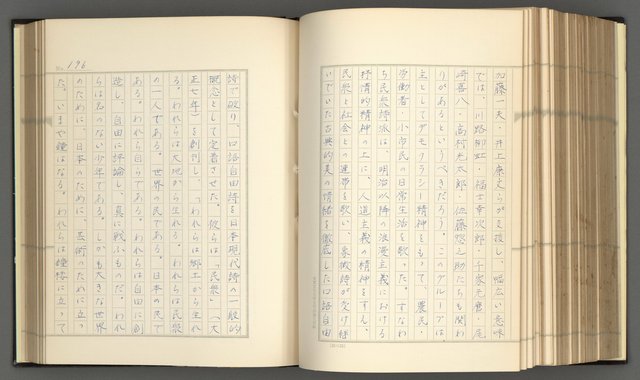 加藤一夫・井上康文らが支援し、幅広い意味
では、川路柳虹・福士幸次郎・千家元麿・尾
崎喜八・高村光太郎・佐藤惣之助たちも関わ
りがあるというべきだろう。このグループは、
主としてデモクラシー精神をもって、農民・
労働者・小市民の日常生活を歌った。すなわ
ち民衆詩派は、明治以降の浪漫主義における
抒情的精神の上に、人道主義の精神をすえ、
民衆と社会との連帯を歌い、象徴詩が欠け
いでいた古典的美の情緒を徹底した口語自由
No. 196
詩で破り、口語自由詩を日本現代詩の一般的
概念として定着させた。彼らは、「民衆」(大
正七年)を創刊し、「われらは郷土から生れ
る。われらは大地から生れる。われらは民衆
の一人である。世界の民である。日本の民で
ある。われら自らである。われらは自由に創
造し、自由に評論し、真に戦ふものだ。われ
らは名のない少年である。しかも大きな世界
のために、日本のために、芸術のために立つ
た。いまや鐘はなる。われらは鐘楼に立って